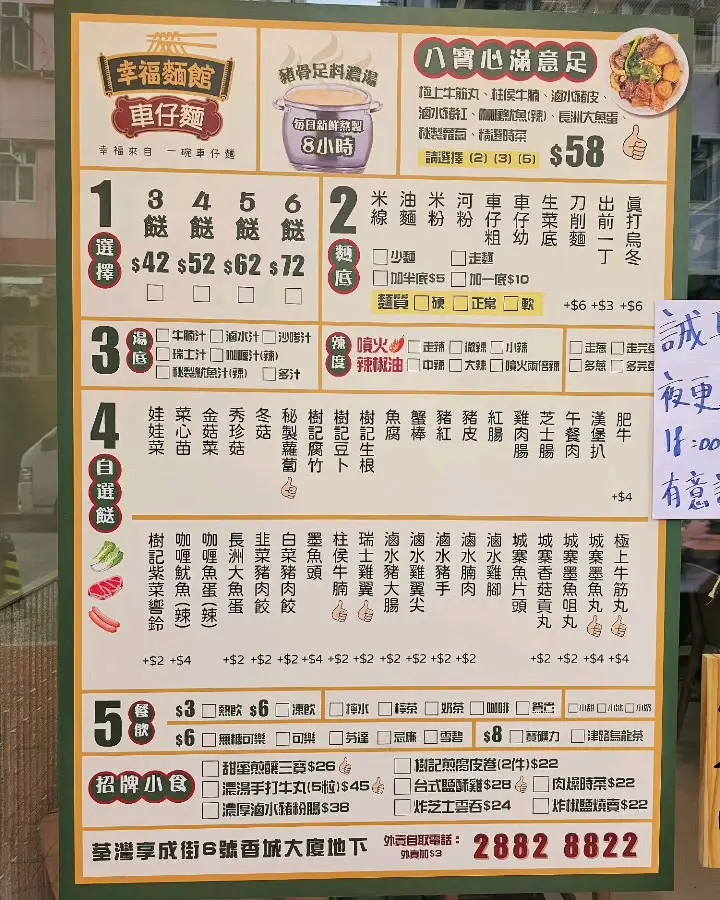 幸福麵館
車仔麵
幸福來自 一碗車仔麵
豬骨足料濃湯
每日新鮮熬製
8小時
八寶心滿意足
極上牛筋丸、柱侯牛腩、滷水豬皮、
滷水豬紅、咖喱魷魚(辣)、長洲大魚蛋、
秘製蘿蔔、精選時菜
請選擇 (2) (3) (5) $58
1 選擇
3餸 4餸 5餸 6餸
$42 $52 $62 $72
2 麵底
米線
油麵
米粉
河粉
車仔粗
車仔幼
生菜底
刀削麵 +$6
出前一丁 +$3
真打烏冬 +$6
少麵 走麵
加半底$5 加一底$10
麵質 硬 正常 軟
3 湯底
牛腩汁 滷水汁 沙嗲汁
瑞士汁 咖喱汁(辣)
秘製魷魚汁(辣) 多汁
辣度
噴火 走辣 微辣 小辣
辣椒油 中辣 大辣 噴火兩倍辣
走蔥 走芫
多蔥 多芫
4 自選餸
娃娃菜
菜心苗
金菇菜
秀珍菇
冬菇
秘製蘿蔔
樹記腐竹
樹記豆卜
樹記生根
魚腐
蟹棒
豬紅
豬皮
紅腸
雞肉腸
芝士腸
午餐肉
漢堡扒
肥牛 +$4
樹記紫菜響鈴 +$2
咖喱魷魚(辣) +$4
咖喱魚蛋(辣)
長洲大魚蛋 +$2
韭菜豬肉餃 +$2
白菜豬肉餃 +$2
墨魚頭 +$4
柱侯牛腩 +$2
瑞士雞翼 +$2
滷水豬大腸 +$2
滷水雞翼尖 +$2
滷水豬手 +$2
滷水腩肉 +$2
滷水雞腳
城寨魚片頭
城寨香菇貢丸 +$2
城寨墨魚咀丸 +$2
城寨墨魚丸 +$4
極上牛筋丸 +$4
5 餐飲
$3 熱飲 $6 凍飲 檸水 檸茶 奶茶 咖啡 鴛鴦 小甜 小冰 小奶
$6 無糖可樂 可樂 芬達 忌廉 雪碧 $8 寶礦力 津路烏龍茶
招牌小食
甜蜜煎釀三寶$26 樹記煎腐皮卷(2件)$22
濃湯手打牛丸(5粒)$45 台式鹽酥雞$28 肉燥時菜$22
濃厚滷水豬粉腸$38 炸芝士雲吞$24 炸椒鹽燒賣$22
荃灣享成街6號香城大廈地下 外賣自取電話： 2882 8822
外賣加$3
誠
夜更
18:00
有意